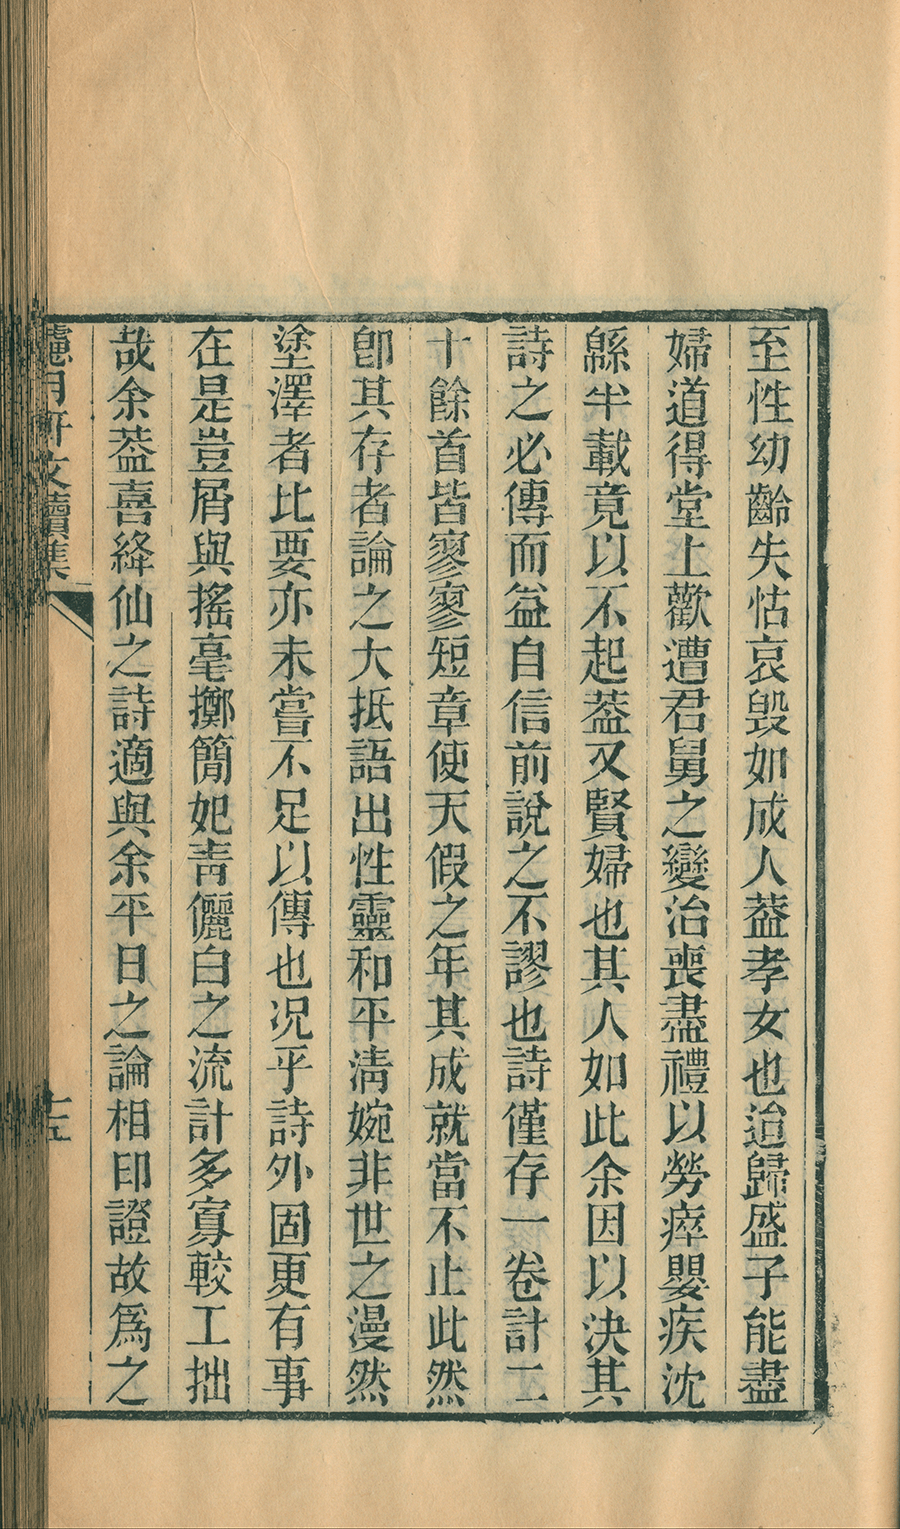 至性幼齡失怙哀毀如成人葢孝女也迨歸盛子能盡
婦道得堂上歡遭君舅之變治喪盡禮以勞瘁嬰疾沈
緜半載竟以不起葢又賢婦也其人如此余因以決其
詩之必傳而益自信前說之不謬也詩僅存一卷計二
十餘首皆寥寥短章使天假之年其成就當不止此然
卽其存者論之大抵語出性靈和平淸婉非世之漫然
塗澤者比要亦未嘗不足以傳也况乎詩外固更有事
在是豈屑與搖毫擲簡妃靑儷白之流計多寡較工拙
哉余葢喜絳仙之詩適與余平日之論相印證故爲之
月軒文續集
十五